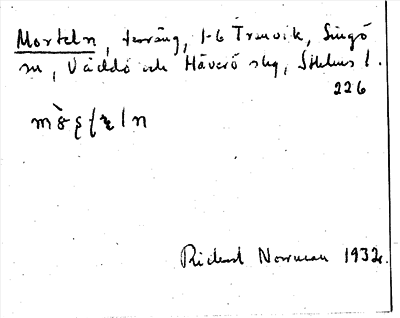 Morteln, terräng, 1-6 Tranvik, Singö
sn, Väddö och Häverö skg, Sthlms l.
226
Rickard Norrman 1932.